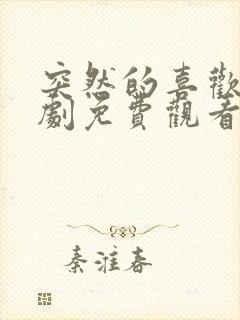 突然的喜歡
劇免費觀看
秦淮春